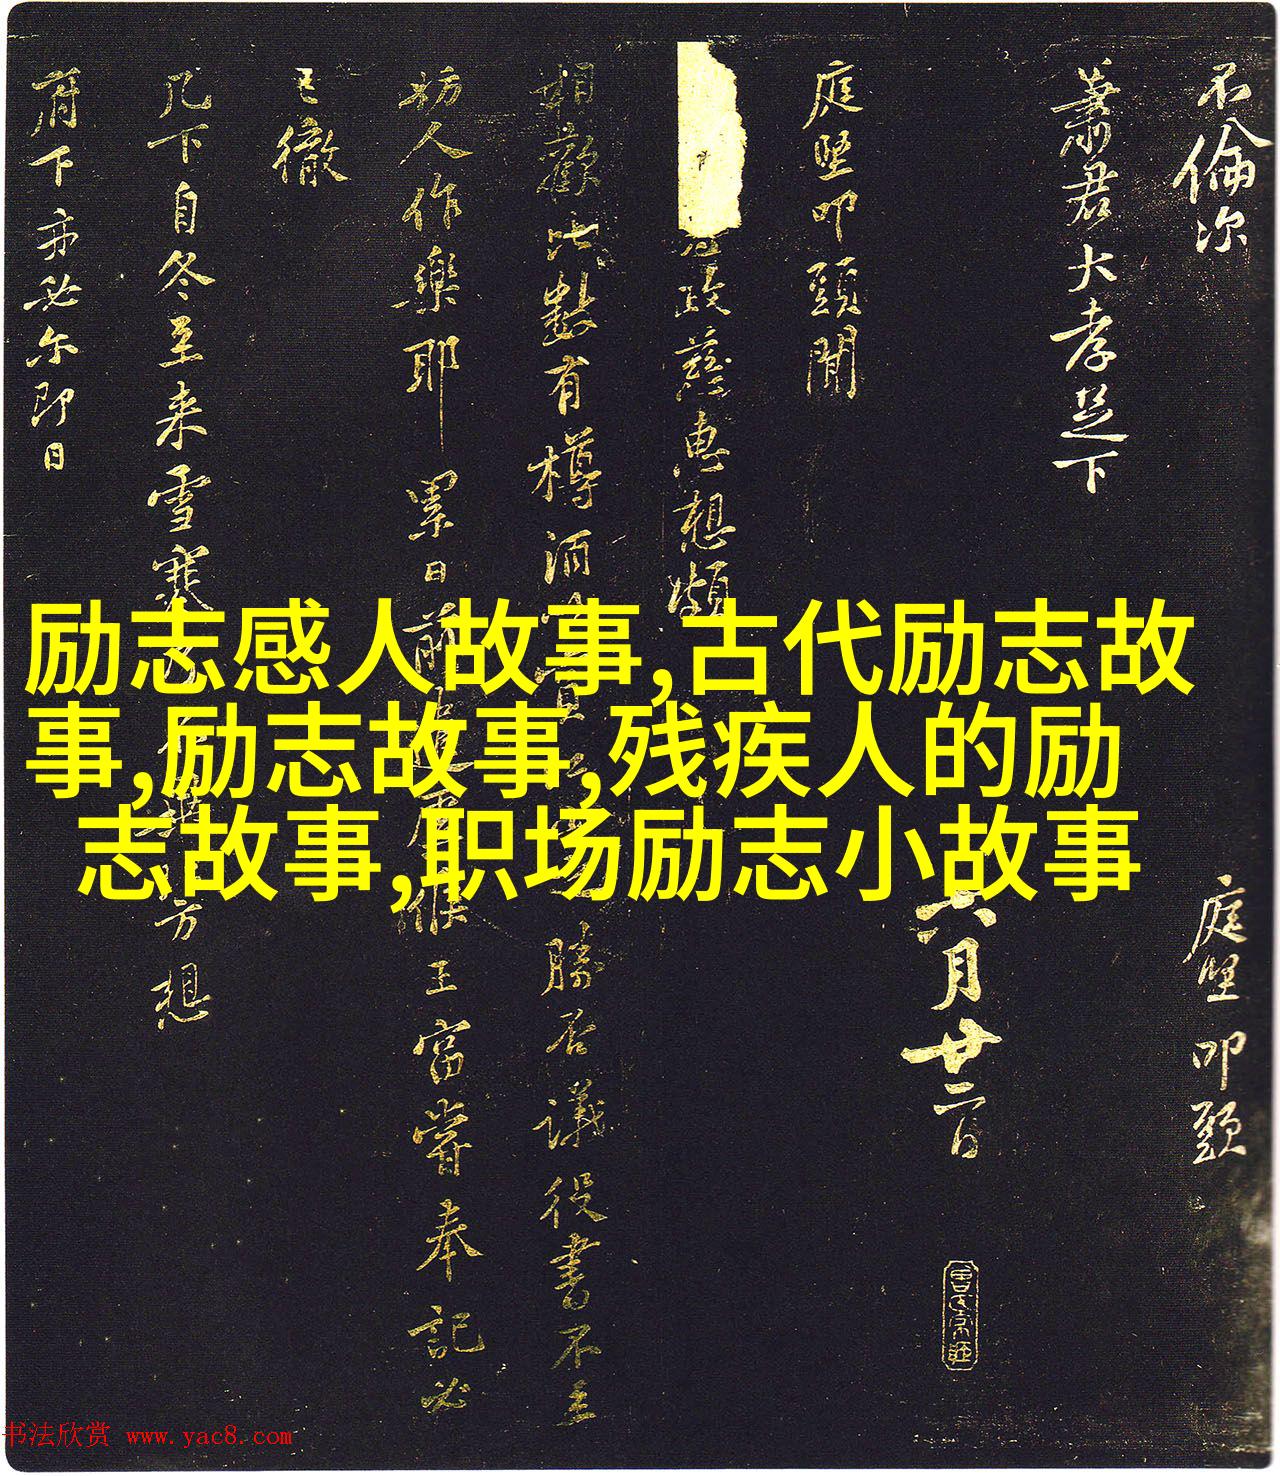 不倫次
庭堅叩頭
蕭君大孝足下
六月廿二日
庭堅叩頭聞
政慈惠想頗
相歡此數有樽酒
勝否議役書不立
妨人作樂耶累日前
王富嘗奉記必
已徹
几下自冬至来雪寒
方想
府下亦必尔即日
励志感人故事,古代励志故
事,励志故事,残疾人的励
志故事,职场励志小故事
书法欣赏 www.yac8.com